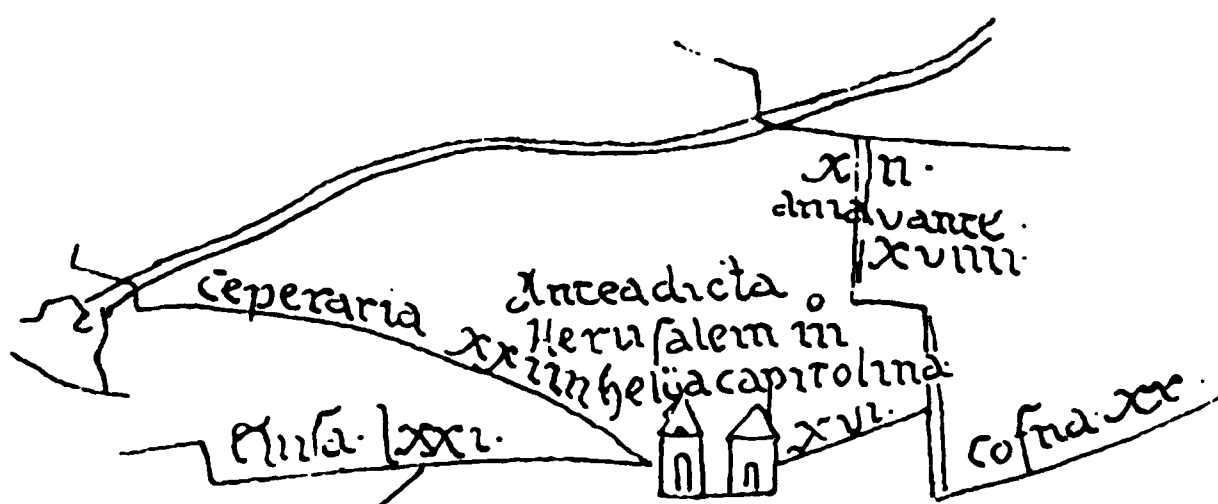 x n.
aniavante.
xviiii.
cēperaria
xxiiii
Anteadicta
Herusalem in
helyacapitolina.
eluſa. lxxi.
xvi.
cofna. xx.